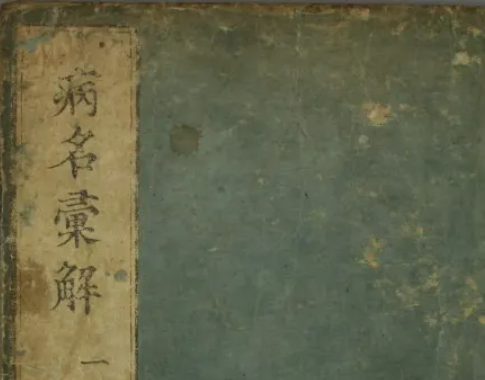 病名彙解
一